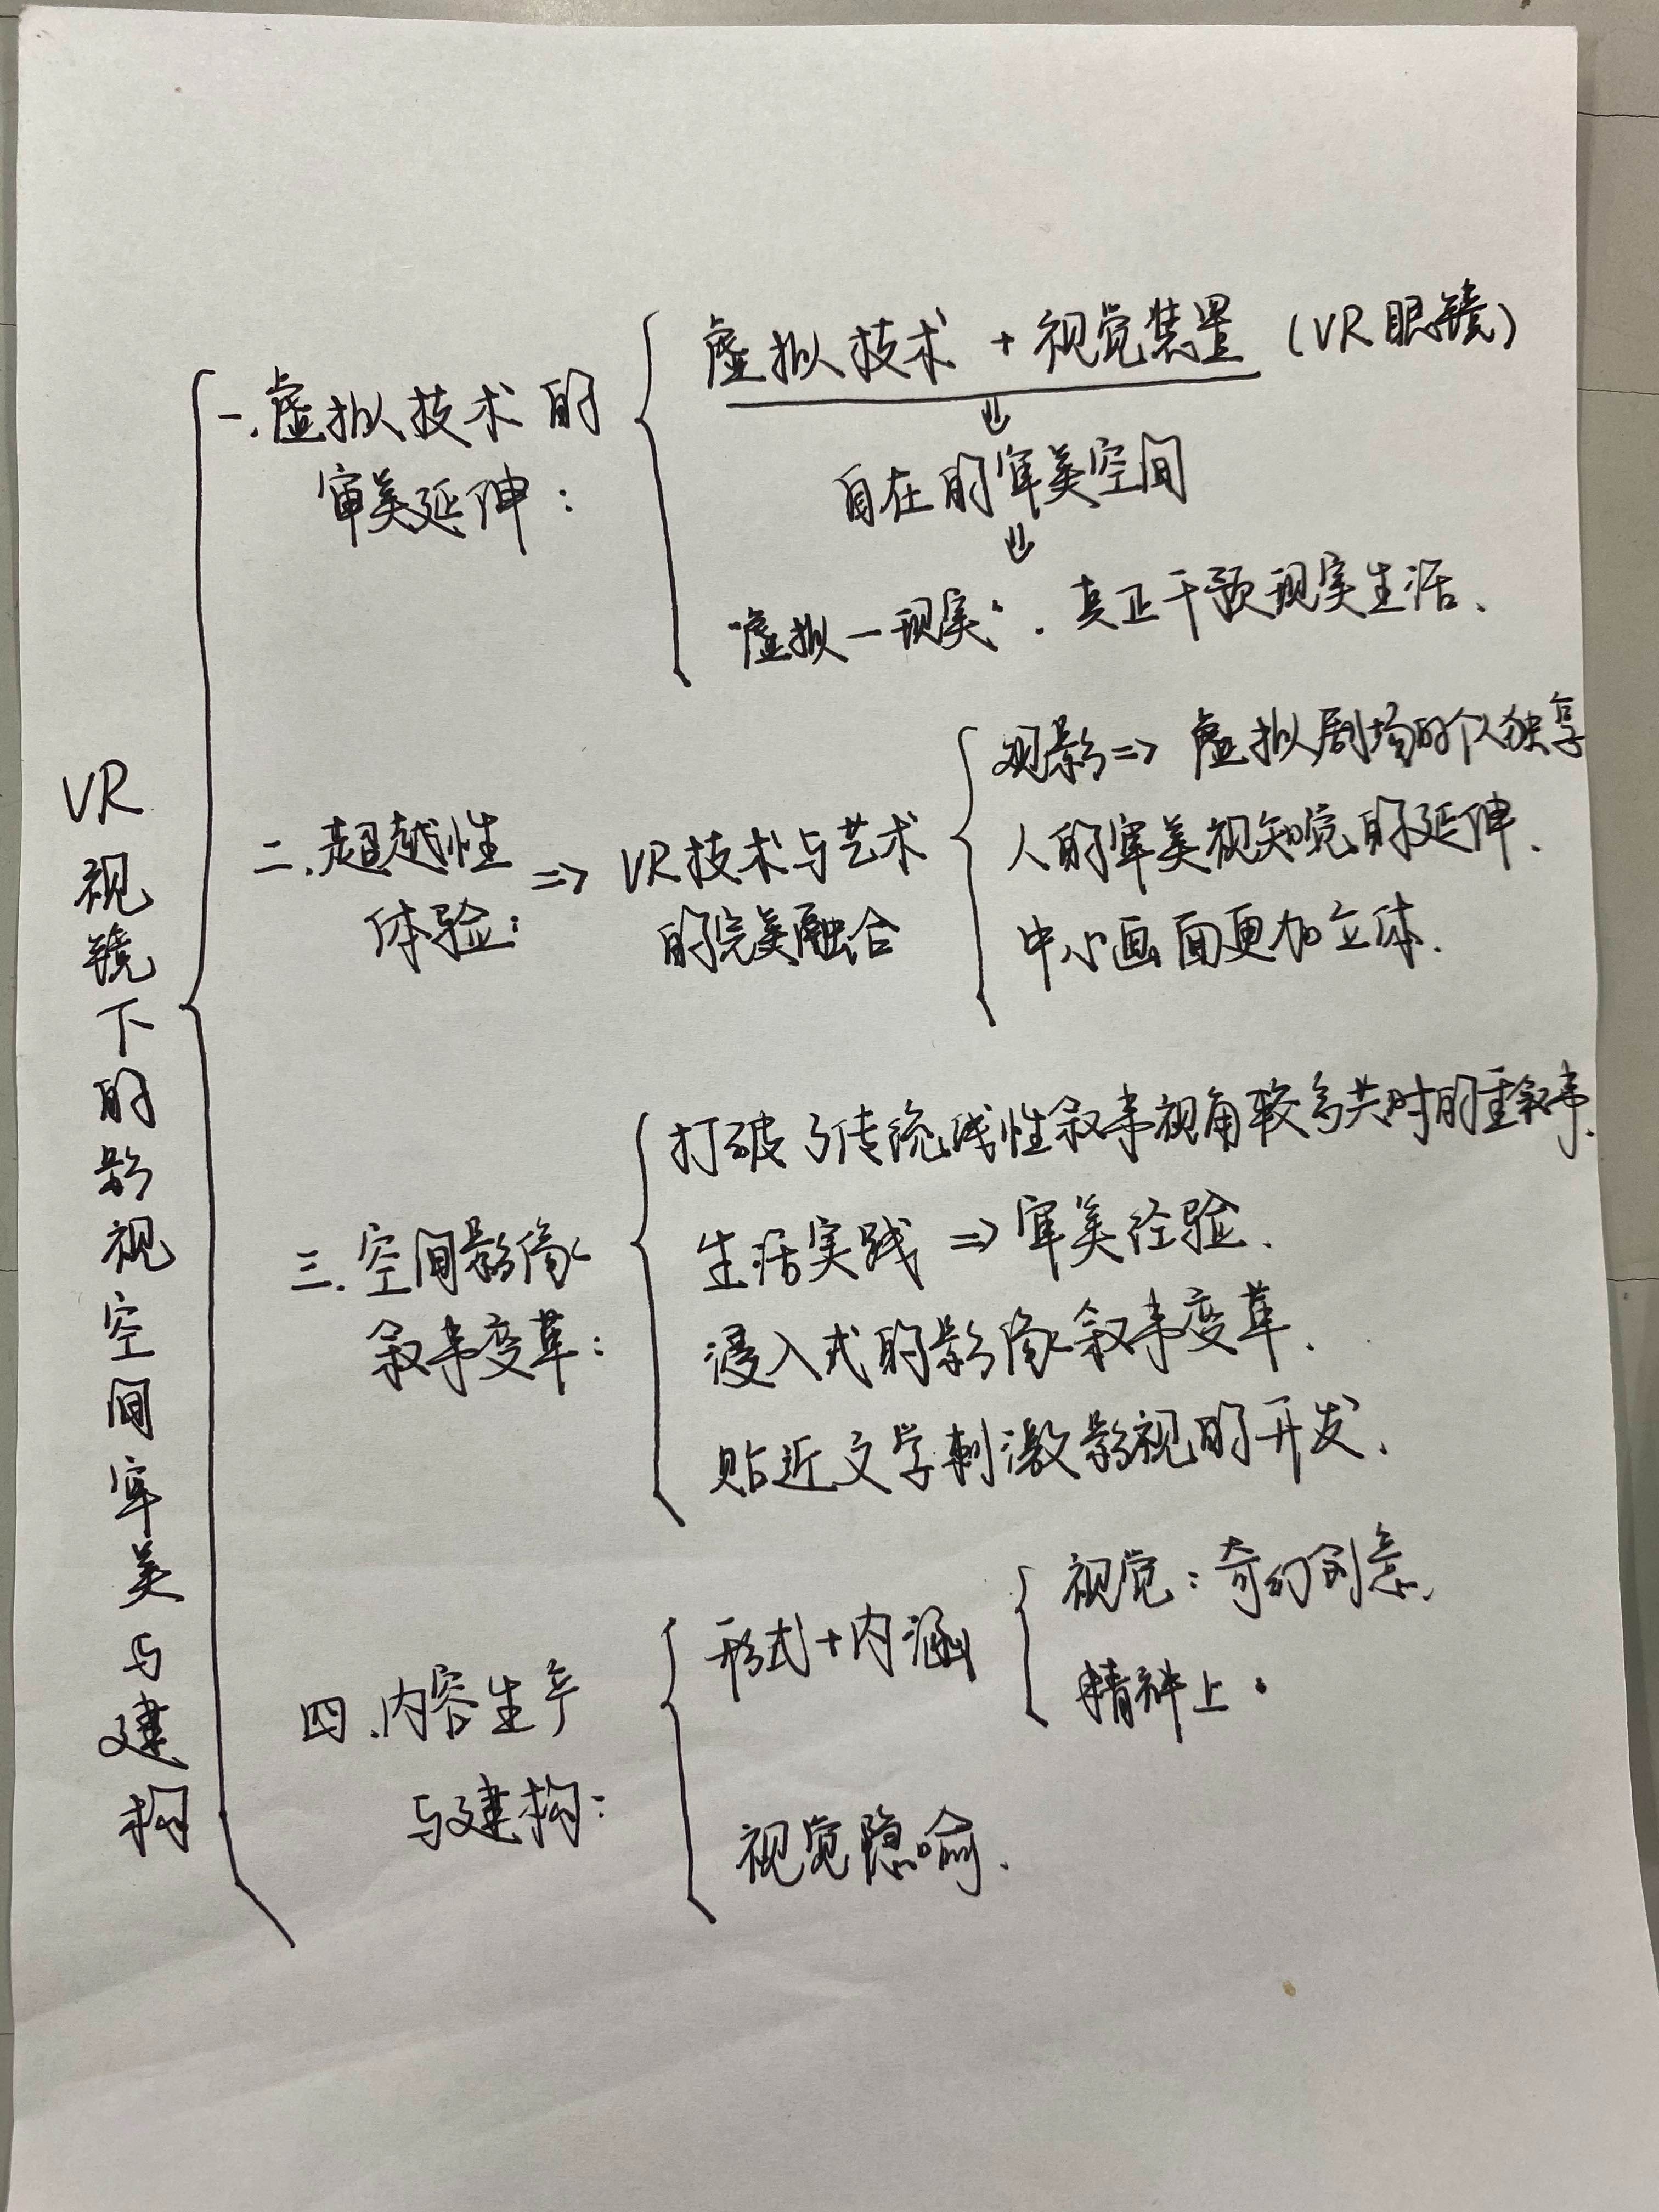 VR视镜下的影视空间审美与建构
一.虚拟技术的
审美延伸：
虚拟技术 + 视觉装置 (VR眼镜)
⇓
自在的审美空间
⇓
"虚拟—现实". 真正干预现实生活、
二.超越性
体验：
⇒ VR技术与艺术
的完美融合
观影⇒ 虚拟剧场的个人独享
人的审美视知觉的延伸、
中小画面更加立体.
三.空间影像
叙事变革：
打破了传统线性叙事视角较多共时的重叙事.
生活实践 ⇒ 审美经验、
浸入式的影像叙事变革、
贴近文学刺激影视的开发、
四.内容生产
与建构：
形式+内涵
视觉：奇幻创意、
精神上.
视觉隐喻、